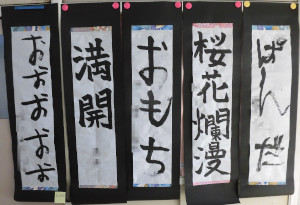 ぱんだ
桜花爛漫
おもち
満開
おおおおお